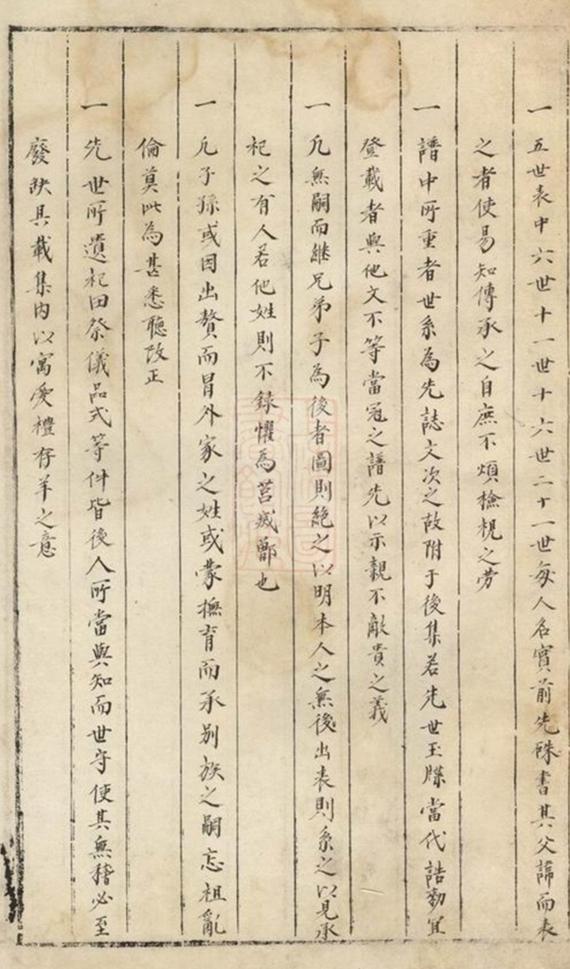 一五世表中六世十一世十六世二十一世每人名實前先硃書其父諱而表
之者使易知傳承之自庶不煩檢視之劳
一譜中所重者世系為先誌文次之故附于後集若先世玉牒當代誥勅宜
登載者與他文不等當冠之譜先以示親不敵貴之義
一凡無嗣而継兄弟子為後者圖則絶之以明本人之無後出表則系之以見承
祀之有人若他姓則不録懼為莒滅鄫也
一凡子孫或因出贅而冒外家之姓或蒙撫育而承别族之嗣忘祖亂
倫莫此為甚悉聽改正
一先世所遺祀田祭儀品式等件皆後人所當與知而世守使其無稽必至
廢缺具載集内以寓愛禮存羊之意